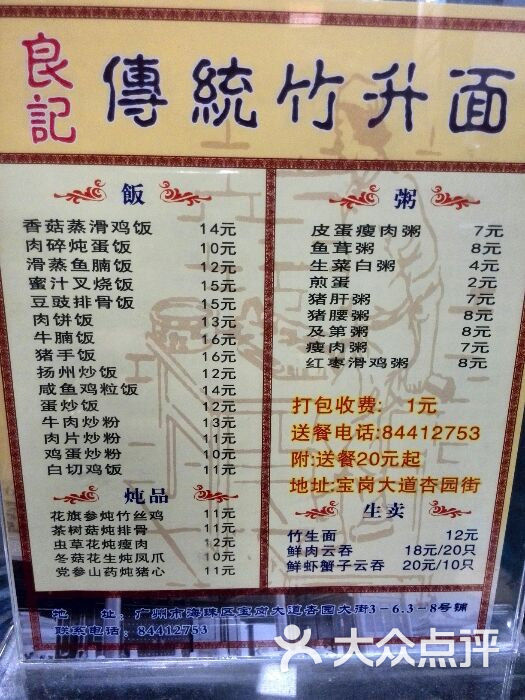 良記
傳統竹升面
飯
香菇蒸滑鸡饭 14元
肉碎炖蛋饭 10元
滑蒸鱼腩饭 12元
蜜汁叉烧饭 15元
豆豉排骨饭 15元
肉饼饭 13元
牛腩饭 16元
猪手饭 16元
扬州炒饭 12元
咸鱼鸡粒饭 14元
蛋炒饭 12元
牛肉炒粉 13元
肉片炒粉 11元
鸡蛋炒粉 10元
白切鸡饭 11元
炖品
花旗参炖竹丝鸡 11元
茶树菇炖排骨 11元
虫草花炖瘦肉 12元
冬菇花生炖凤爪 10元
党参山药炖猪心 11元
粥
皮蛋瘦肉粥 7元
鱼茸粥 8元
生菜白粥 4元
煎蛋 2元
猪肝粥 7元
猪腰粥 8元
及第粥 8元
瘦肉粥 7元
红枣滑鸡粥 8元
打包收费: 1元
送餐电话:84412753
附:送餐20元起
地址:宝岗大道杏园街
生卖
竹生面 12元
鲜肉云吞 18元/20只
鲜虾蟹子云吞 20元/10只
地 址: 广州市海珠区宝岗大道杏园大街3-6.3-8号铺
联系电话: 84412753
大众点评